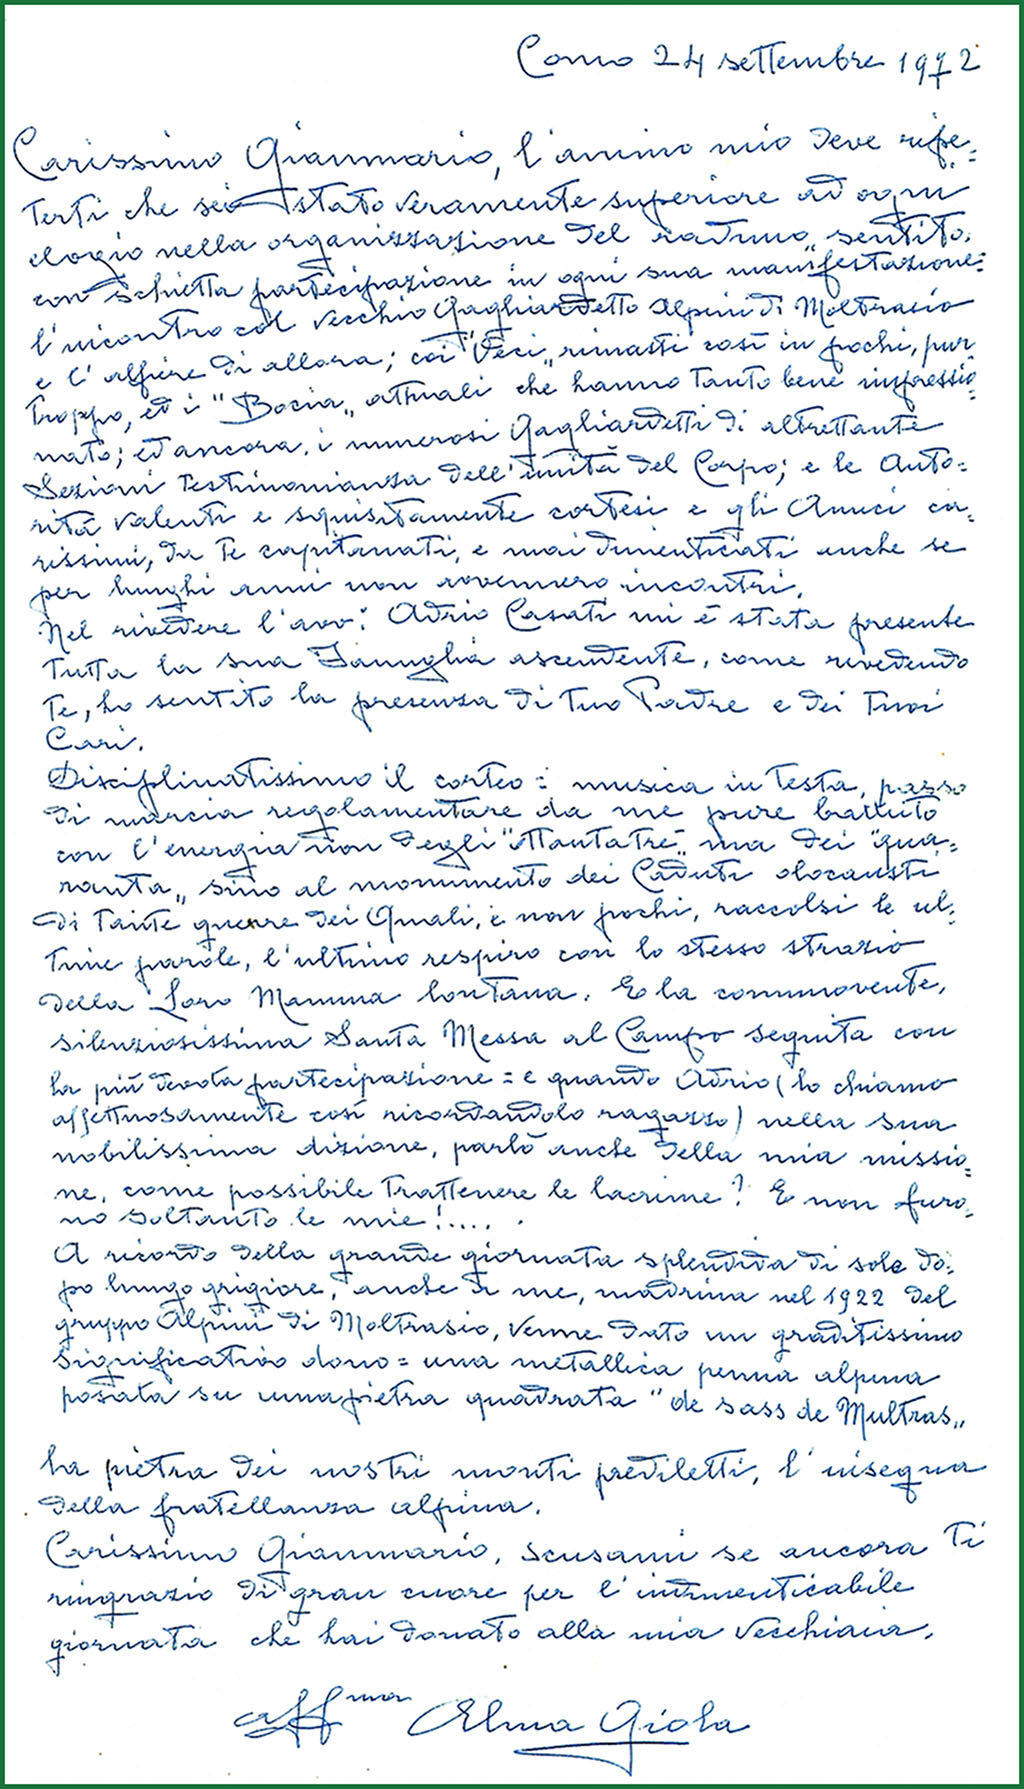 Como 24 settembre 1972
Carissimo Gianmario, l'animo mio deve ripe=
terti che sei stato veramente superiore ad ogni
elogio nella organizzazione del raduno, sentito
con schietta partecipazione in ogni sua manifestazione=
l'incontro col vecchio Gagliardetto Alpini di Moltrasio
e l'alfiere di allora; coi "Veci„ rimasti così in pochi, pur
troppo, ed i "Bocia„ attuali che hanno tanto bene impressio=
nato; ed ancora, i numerosi Gagliardetti di altrettante
Sezioni testimonianza dell'unità del Corpo; e le Auto=
rità valenti e squisitamente cortesi e gli Amici ca=
rissimi, da Te capitanati, e mai dimenticati anche se
per lunghi anni non avvennero incontri.
Nel rivedere l'avv: Adrio Casati mi è stata presente
tutta la sua Famiglia ascendente, come rivedendo
Te, ho sentito la presenza di Tuo Padre e dei Tuoi
Cari.
Disciplinatissimo il corteo = musica in testa, passo
di marcia regolamentare da me pure battuto
con l'energia non degli "ottantatre„ ma dei "qua=
ranta„ sino al monumento dei Caduti olocausti
di tante guerre dei Quali, e non pochi, raccolsi le ul=
time parole, l'ultimo respiro con lo stesso strazio
della Loro Mamma lontana. E la commovente,
silenziosissima Santa Messa al Campo seguita con
la più devota partecipazione = e quando Adrio (lo chiamo
affettuosamente così ricordandolo ragazzo) nella sua
nobilissima dizione, parlò anche della mia missio=
ne, come possibile trattenere le lacrime? E non furo=
no soltanto le mie!.... .
A ricordo della grande giornata splendida di sole do=
po lungo grigiore, anche a me, madrina nel 1922 del
gruppo Alpini di Moltrasio, venne dato un graditissimo
significativo dono = una metallica penna alpina
posata su una pietra quadrata "de sass de Multras„
la pietra dei nostri monti prediletti, l'insegna
della fratellanza alpina.
Carissimo Gianmario, scusami se ancora Ti
ringrazio di gran cuore per l'indimenticabile
giornata che hai donato alla mia vecchiaia.
aff.ma Alma Giola